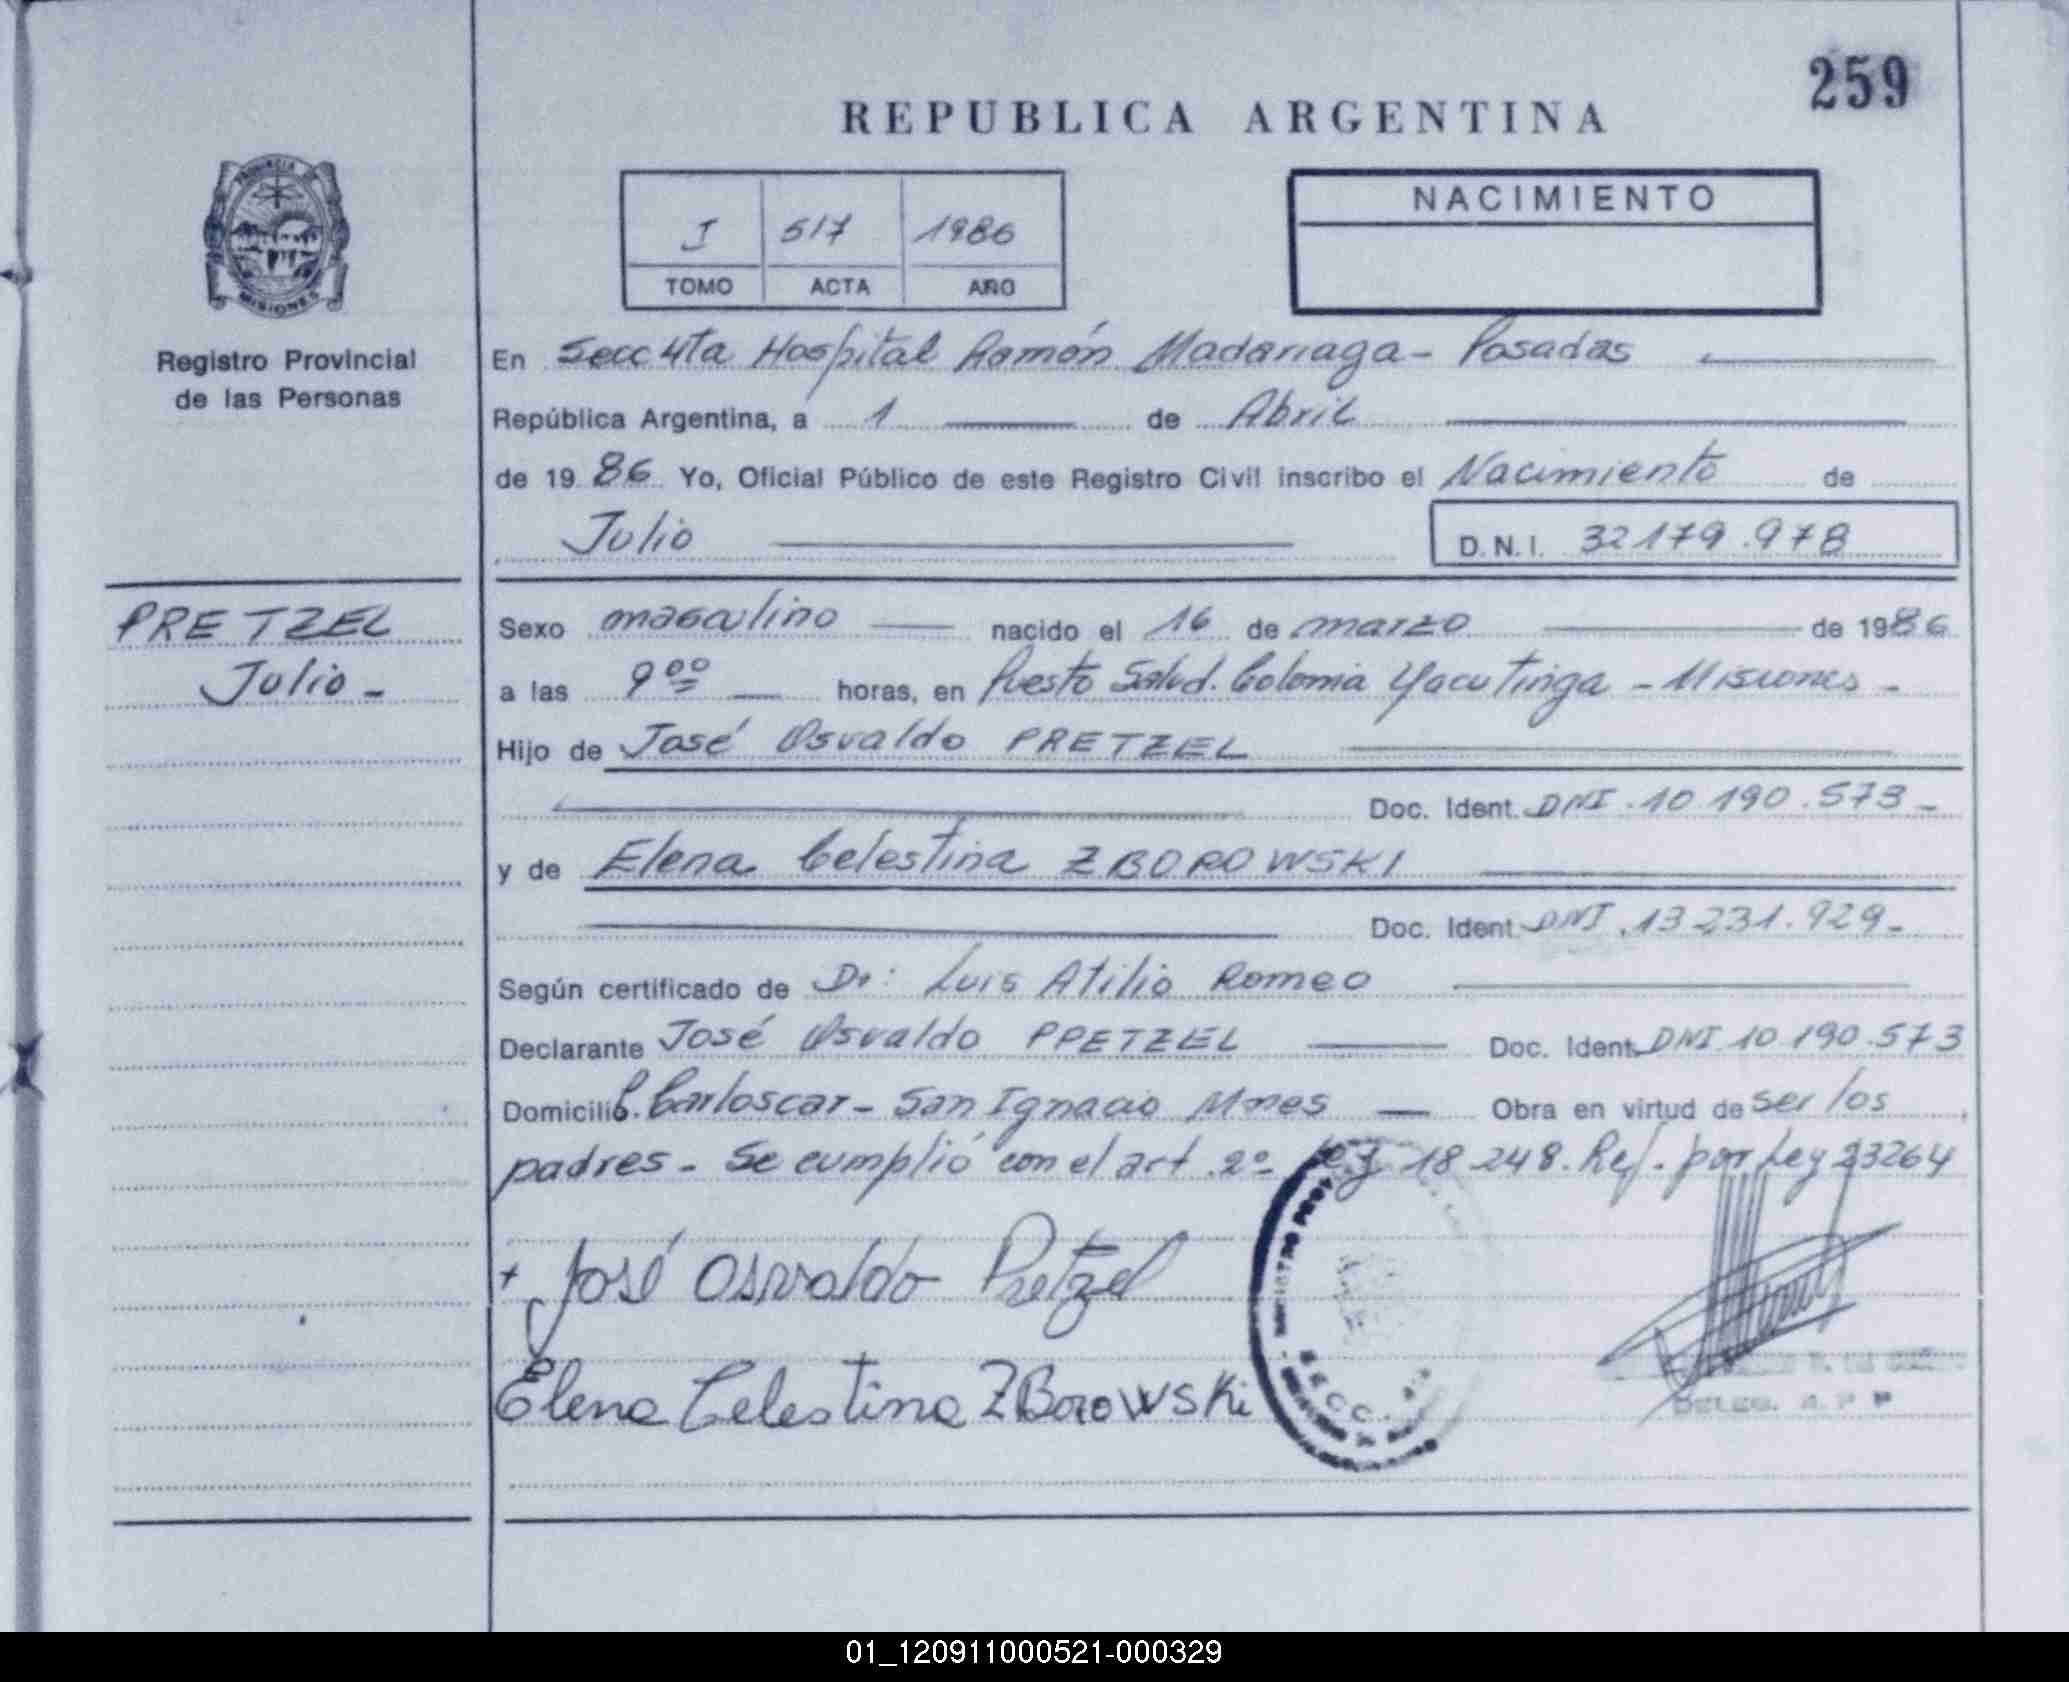 259
REPUBLICA ARGENTINA
PROVINCIA DE
MISIONES
I 517 1986
TOMO ACTA AÑO
NACIMIENTO
Registro Provincial
de las Personas
En Secc 4ta Hospital Ramón Madariaga - Posadas
República Argentina, a 1 de Abril
de 1986 Yo, Oficial Público de este Registro Civil inscribo el Nacimiento de
Julio D.N.I. 32179.978
PRETZEL
Julio -
Sexo masculino nacido el 16 de marzo de 1986
a las 9 00 horas, en Puesto Salud. Colonia Yacutinga - Misiones -
Hijo de José Osvaldo PRETZEL
Doc. Ident. DNI. 10 190.573 -
y de Elena Celestina ZBOROWSKI
Doc. Ident. DNI. 13 231.929 -
Según certificado de Dr: Luis Atilio Romeo
Declarante José Osvaldo PRETZEL Doc. Ident. DNI 10 190.573
Domicilio C. Carloscar - San Ignacio Mnes Obra en virtud de ser los
padres - Se cumplió con el art 2º Ley 18 248. Ref. por Ley 23264
+ José Osvaldo Pretzel
Elena Celestina ZBOROWSKi
SECC. 4ta
DELEG.
01_120911000521-000329